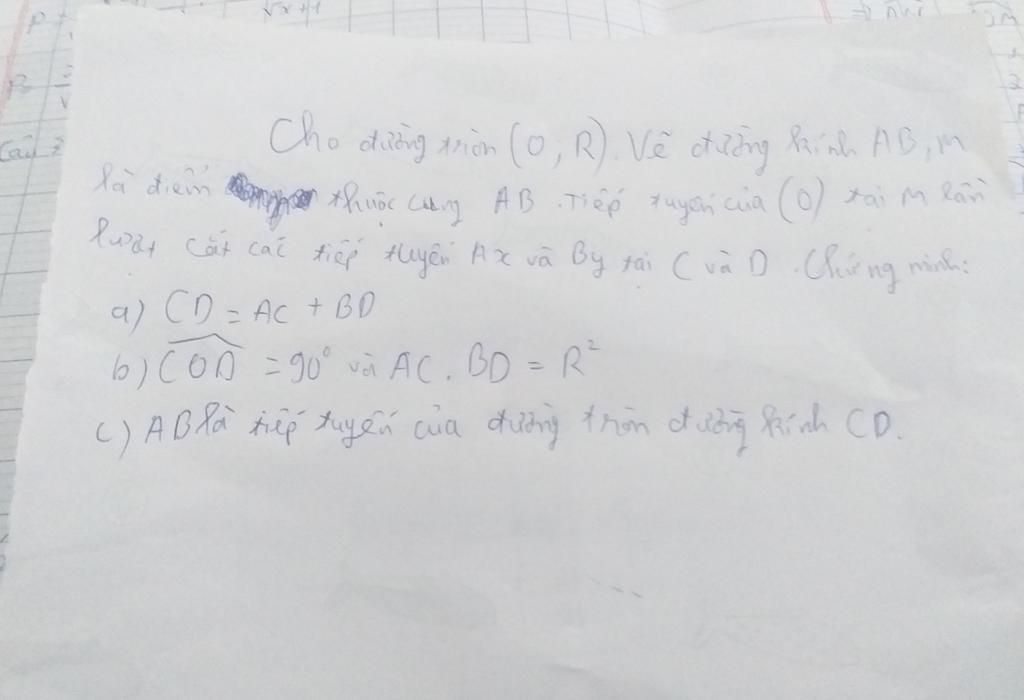 √x+1
Cho đường tròn (O; R). Vẽ đường kính AB, M
là điểm thuộc cung AB. Tiếp tuyến của (O) tại M lần
lượt cắt các tiếp tuyến Ax và By tại C và D. Chứng minh:
a) CD = AC + BD
b) COD = 90° và AC . BD = R²
c) AB là tiếp tuyến của đường tròn đường kính CD.